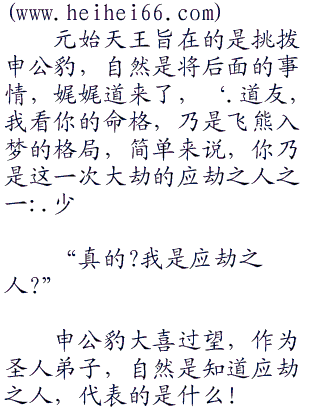 (www.heihei66.com)
元始天王旨在的是挑拨
申公豹，自然是将后面的事
情，娓娓道来了，‘.道友，
我看你的命格，乃是飞熊入
梦的格局，简单来说，你乃
是这一次大劫的应劫之人之
一:.少
“真的?我是应劫之
人?”
申公豹大喜过望，作为
圣人弟子，自然是知道应劫
之人，代表的是什么!